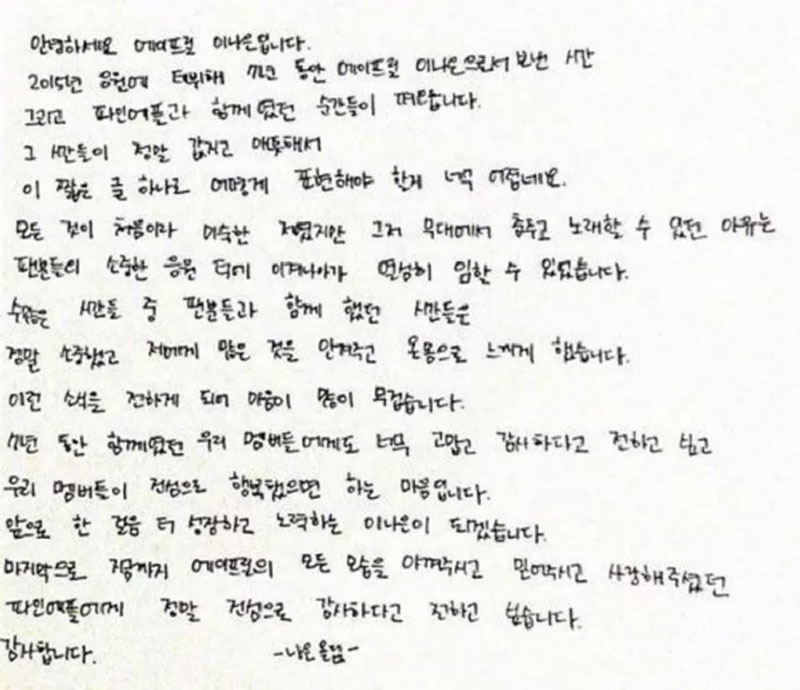 안녕하세요 에이프릴 이나은입니다.
2015년 응원에 데뷔해 7년 동안 에이프릴 이나은으로서 보낸 시간
그리고 파인에플과 함께였던 순간들이 떠오릅니다.
그 시간들이 정말 값지고 애틋해서
이 짧은 글 하나로 어떻게 표현해야 할지 너무 어렵네요.
모든 것이 처음이라 미숙한 저였지만 그저 무대에서 춤추고 노래할 수 있었던 이유는
팬분들의 소중한 응원 덕에 이겨나아가 열심히 임할 수 있었습니다.
수많은 시간들 중 팬분들과 함께 했던 시간들은
정말 소중했고 저에게 많은 것을 안겨주고 온몸으로 느끼게 했습니다.
이런 소식을 전하게 되어 마음이 많이 무겁습니다.
7년 동안 함께였던 우리 멤버들에게도 너무 고맙고 감사하다고 전하고 싶고
우리 멤버들이 진심으로 행복했으면 하는 마음입니다.
앞으로 한 걸음 더 성장하고 노력하는 이나은이 되겠습니다.
마지막으로 지금까지 에이프릴의 모든 모습을 아껴주시고 믿어주시고 사랑해주셨던
파인에플에게 정말 진심으로 감사하다고 전하고 싶습니다.
감사합니다. -나은 올림-